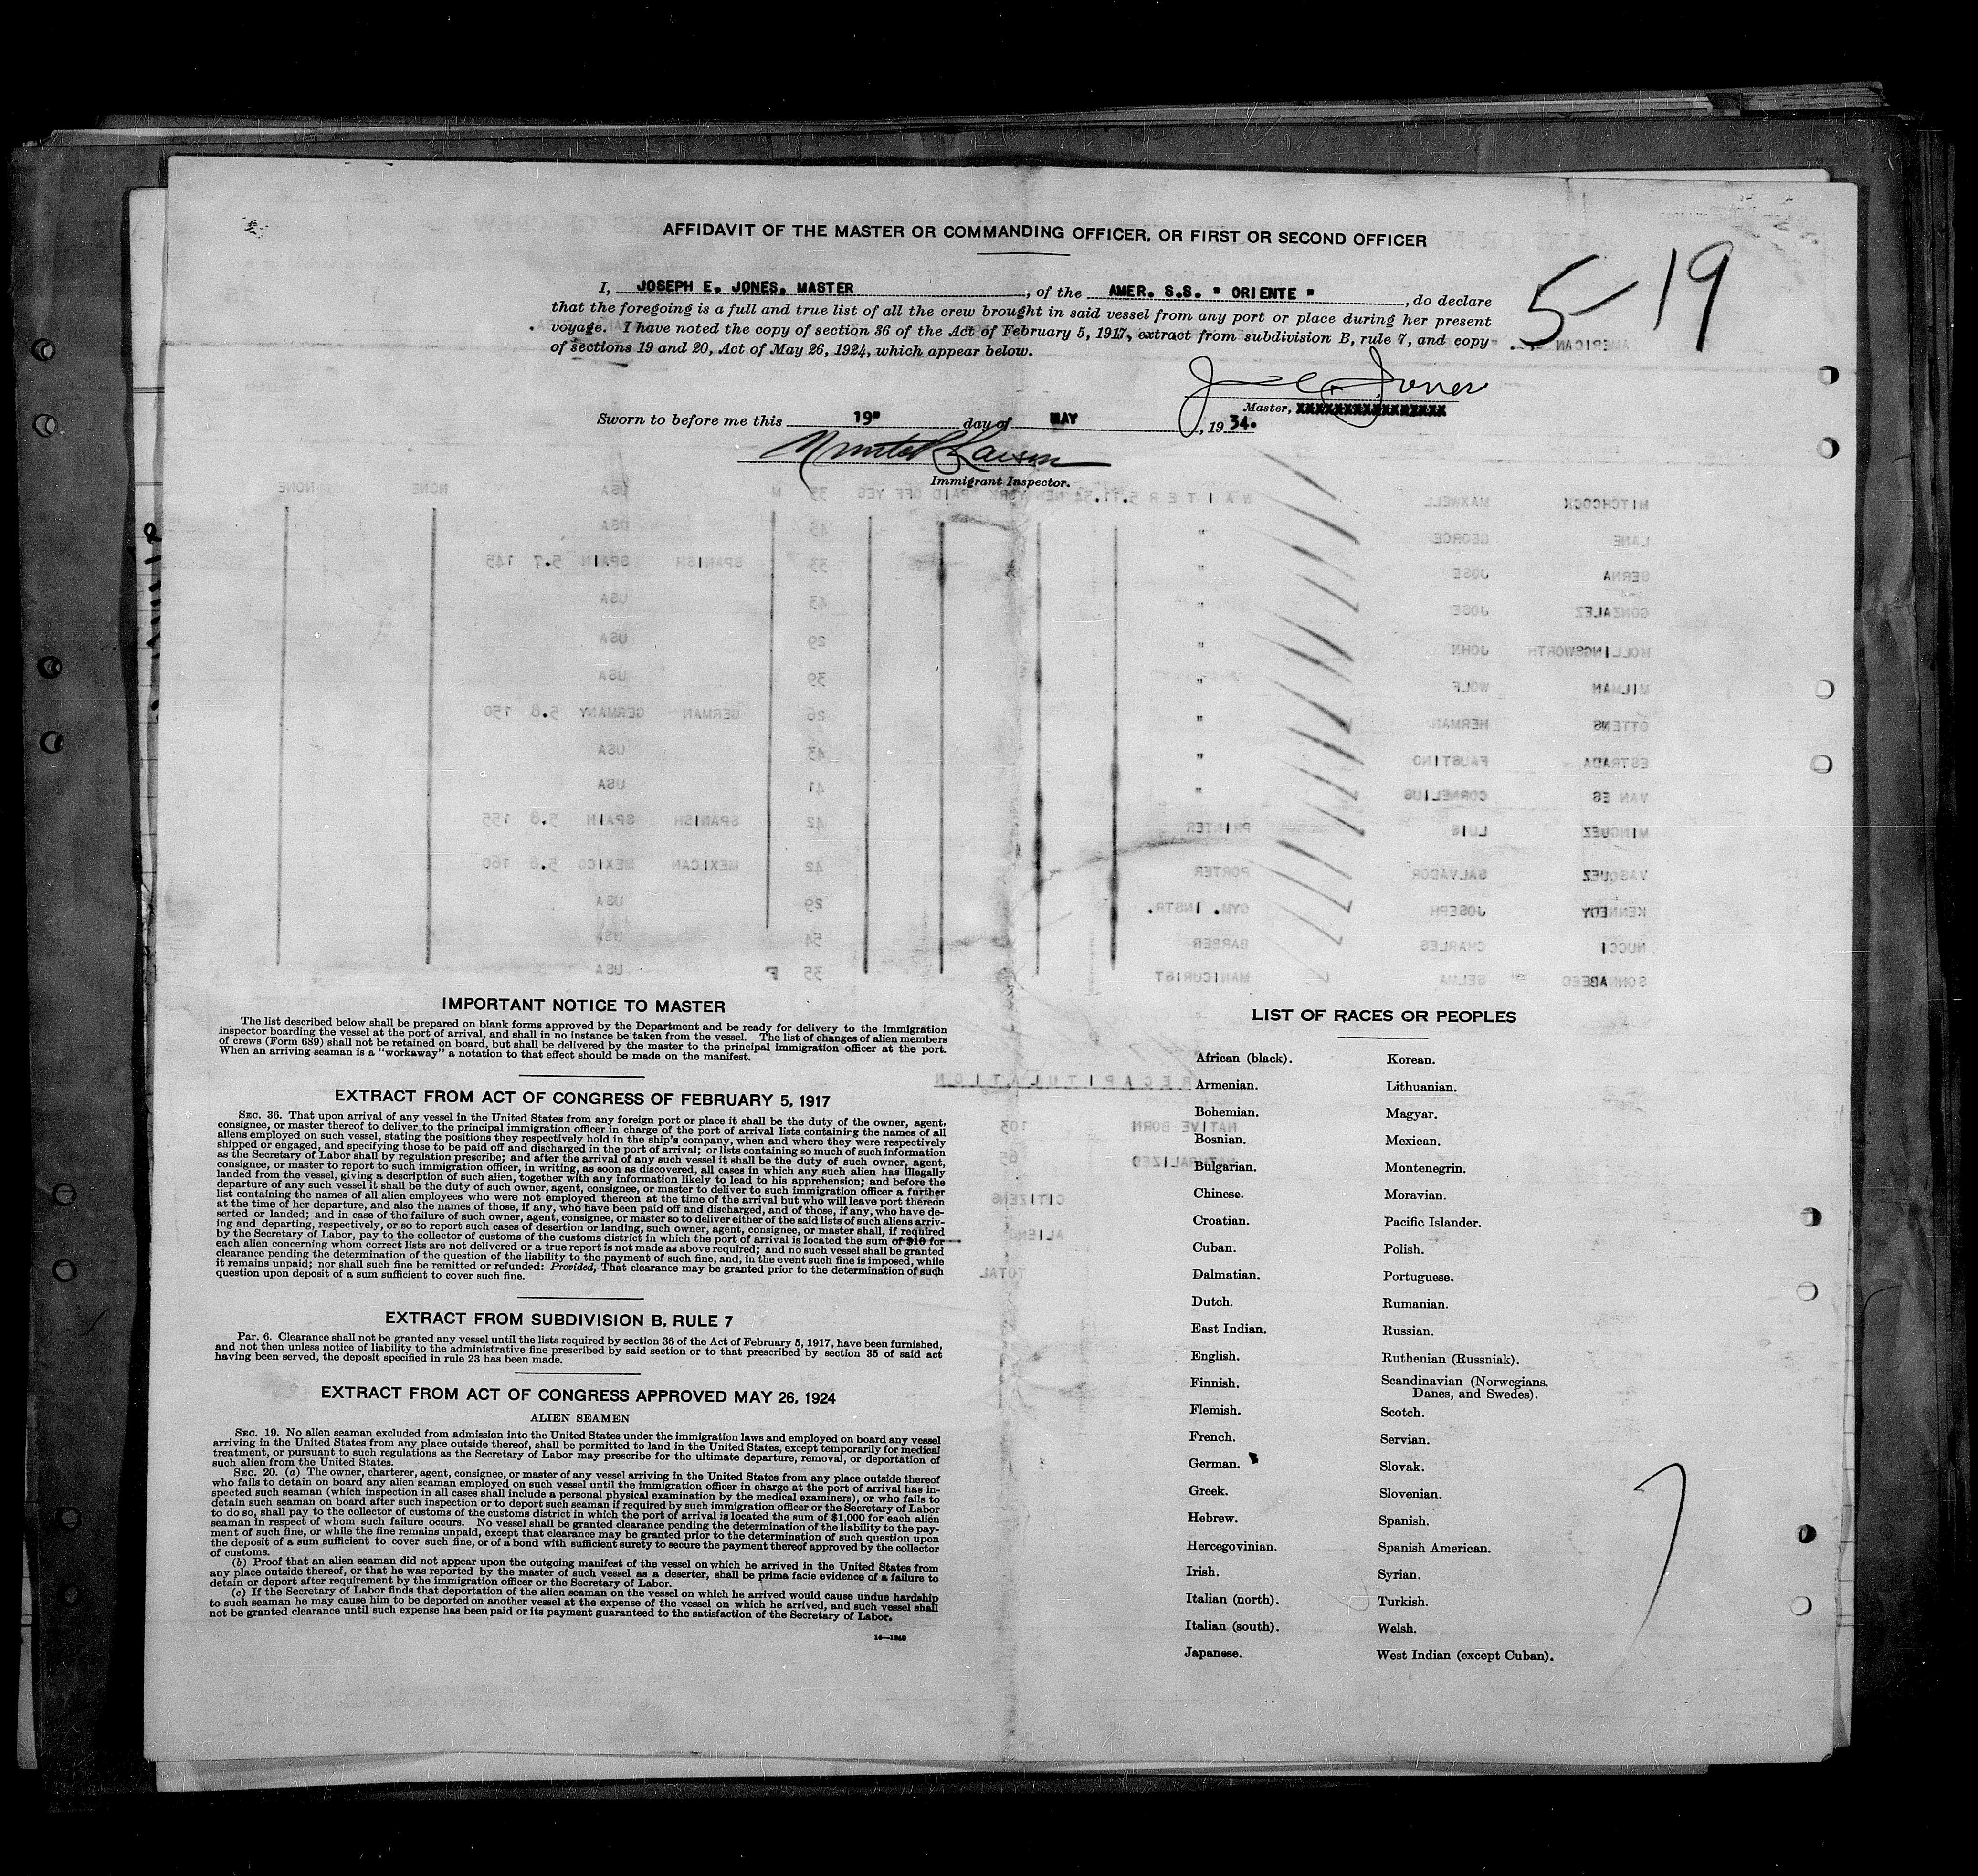 AFFIDAVIT OF THE MASTER OR COMMANDING OFFICER, OR FIRST OR SECOND OFFICER
5-19
I, JOSEPH E. JONES, MASTER, of the AMER. S.S. " ORIENTE ", do declare
that the foregoing is a full and true list of all the crew brought in said vessel from any port or place during her present
voyage. I have noted the copy of section 36 of the Act of February 5, 1917, extract from subdivision B, rule 7, and copy
of sections 19 and 20, Act of May 26, 1924, which appear below.
Jones
Master, XXXXXXXXXXXXXXXX
Sworn to before me this 19" day of MAY, 1934.
Immigrant Inspector.
HITCHCOCK MAXWELL WAITER 5.11.34 NEW YORK PAID OFF YES 33 M USA NONE NONE
LANE GEORGE " 45 USA
SERNA JOSE " 33 SPANISH SPAIN 5.7 145
GONZALEZ JOSE " 43 USA
HOLLINGSWORTH JOHN " 29 USA
MILMAN WOLF " 39 USA
OTTENS HERMAN " 26 GERMAN GERMANY 5.8 150
ESTRADA FAUSTINO " 43 USA
VAN ES CORNELIUS " 41 USA
MINGUEZ LUIS PRINTER 42 SPANISH SPAIN 5.8 155
VASQUEZ SALVADOR PORTER 42 MEXICAN MEXICO 5.6 160
KENNEDY JOSEPH GYM. INSTR. 29 USA
NUCCI CHARLES BARBER 54 USA
SELMA MANICURIST 35 F USA
RECAPITULATION
NATIVE BORN 103
NATURALIZED 65
CITIZENS
ALIENS
TOTAL
IMPORTANT NOTICE TO MASTER
The list described below shall be prepared on blank forms approved by the Department and be ready for delivery to the immigration
inspector boarding the vessel at the port of arrival, and shall in no instance be taken from the vessel. The list of changes of alien members
of crews (Form 689) shall not be retained on board, but shall be delivered by the master to the principal immigration officer at the port.
When an arriving seaman is a "workaway" a notation to that effect should be made on the manifest.
EXTRACT FROM ACT OF CONGRESS OF FEBRUARY 5, 1917
SEC. 36. That upon arrival of any vessel in the United States from any foreign port or place it shall be the duty of the owner, agent,
consignee, or master thereof to deliver to the principal immigration officer in charge of the port of arrival lists containing the names of all
aliens employed on such vessel, stating the positions they respectively hold in the ship's company, when and where they were respectively
shipped or engaged, and specifying those to be paid off and discharged in the port of arrival; or lists containing so much of such information
as the Secretary of Labor shall by regulation prescribe; and after the arrival of any such vessel it shall be the duty of such owner, agent,
consignee, or master to report to such immigration officer, in writing, as soon as discovered, all cases in which any such alien has illegally
landed from the vessel, giving a description of such alien, together with any information likely to lead to his apprehension; and before the
departure of any such vessel it shall be the duty of such owner, agent, consignee, or master to deliver to such immigration officer a further
list containing the names of all alien employees who were not employed thereon at the time of the arrival but who will leave port thereon
at the time of her departure, and also the names of those, if any, who have been paid off and discharged, and of those, if any, who have de-
serted or landed; and in case of the failure of such owner, agent, consignee, or master so to deliver either of the said lists of such aliens arriv-
ing and departing, respectively, or so to report such cases of desertion or landing, such owner, agent, consignee, or master shall, if required
by the Secretary of Labor, pay to the collector of customs of the customs district in which the port of arrival is located the sum of $10 for
each alien concerning whom correct lists are not delivered or a true report is not made as above required; and no such vessel shall be granted
clearance pending the determination of the question of the liability to the payment of such fine, and, in the event such fine is imposed, while
it remains unpaid; nor shall such fine be remitted or refunded: Provided, That clearance may be granted prior to the determination of such
question upon deposit of a sum sufficient to cover such fine.
EXTRACT FROM SUBDIVISION B, RULE 7
Par. 6. Clearance shall not be granted any vessel until the lists required by section 36 of the Act of February 5, 1917, have been furnished,
and not then unless notice of liability to the administrative fine prescribed by said section or to that prescribed by section 35 of said act
having been served, the deposit specified in rule 23 has been made.
EXTRACT FROM ACT OF CONGRESS APPROVED MAY 26, 1924
ALIEN SEAMEN
SEC. 19. No alien seaman excluded from admission into the United States under the immigration laws and employed on board any vessel
arriving in the United States from any place outside thereof, shall be permitted to land in the United States, except temporarily for medical
treatment, or pursuant to such regulations as the Secretary of Labor may prescribe for the ultimate departure, removal, or deportation of
such alien from the United States.
SEC. 20. (a) The owner, charterer, agent, consignee, or master of any vessel arriving in the United States from any place outside thereof
who fails to detain on board any alien seaman employed on such vessel until the immigration officer in charge at the port of arrival has in-
spected such seaman (which inspection in all cases shall include a personal physical examination by the medical examiners), or who fails to
detain such seaman on board after such inspection or to deport such seaman if required by such immigration officer or the Secretary of Labor
to do so, shall pay to the collector of customs of the customs district in which the port of arrival is located the sum of $1,000 for each alien
seaman in respect of whom such failure occurs. No vessel shall be granted clearance pending the determination of the liability to the pay-
ment of such fine, or while the fine remains unpaid, except that clearance may be granted prior to the determination of such question upon
the deposit of a sum sufficient to cover such fine, or of a bond with sufficient surety to secure the payment thereof approved by the collector
of customs.
(b) Proof that an alien seaman did not appear upon the outgoing manifest of the vessel on which he arrived in the United States from
any place outside thereof, or that he was reported by the master of such vessel as a deserter, shall be prima facie evidence of a failure to
detain or deport after requirement by the immigration officer or the Secretary of Labor.
(c) If the Secretary of Labor finds that deportation of the alien seaman on the vessel on which he arrived would cause undue hardship
to such seaman he may cause him to be deported on another vessel at the expense of the vessel on which he arrived, and such vessel shall
not be granted clearance until such expense has been paid or its payment guaranteed to the satisfaction of the Secretary of Labor.
14—1240
LIST OF RACES OR PEOPLES
African (black).
Armenian.
Bohemian.
Bosnian.
Bulgarian.
Chinese.
Croatian.
Cuban.
Dalmatian.
Dutch.
East Indian.
English.
Finnish.
Flemish.
French.
German.
Greek.
Hebrew.
Hercegovinian.
Irish.
Italian (north).
Italian (south).
Japanese.
Korean.
Lithuanian.
Magyar.
Mexican.
Montenegrin.
Moravian.
Pacific Islander.
Polish.
Portuguese.
Rumanian.
Russian.
Ruthenian (Russniak).
Scandinavian (Norwegians,
Danes, and Swedes).
Scotch.
Servian.
Slovak.
Slovenian.
Spanish.
Spanish American.
Syrian.
Turkish.
Welsh.
West Indian (except Cuban).